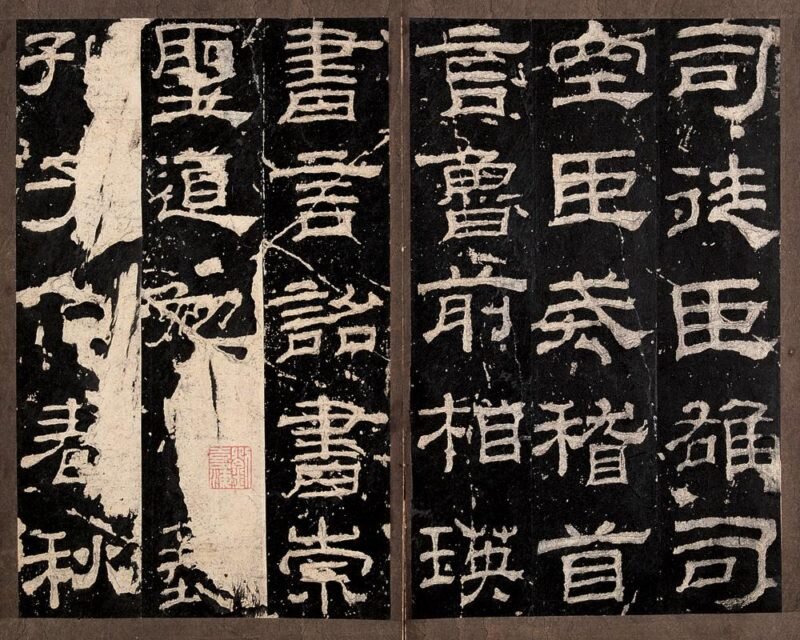 司徒臣雄司
空臣戒稽首
言魯前相瑛
書言詔書崇
聖道勉藝
孔子作春秋